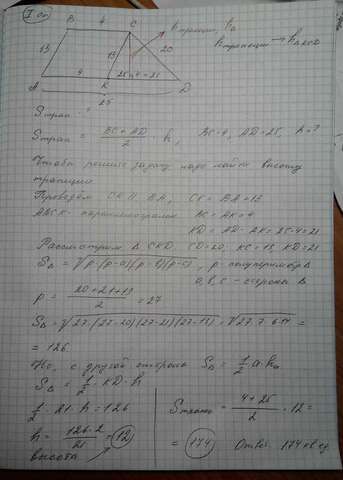 I сп
B 4 C
h трапеции h△
h трапеции → h△KCD
13 13 20
4 25-4=21
A K D
25
Sтрап =
Sтрап = BC + AD / 2 · h, BC=4, AD=25, h=?
Чтобы решить задачу надо найти высоту
трапеции
Проведём CK || BA, CK = BA = 13
ABCK - параллелограмм BC = AK = 4
KD = AD - AK = 25-4=21
Рассмотрим △ CKD CD=20, KC=13, KD=21
S△ = √p(p-a)(p-b)(p-c), p - полупериметр △
a, b, c - стороны △
p = 20+21+13 / 2 = 27
S△ = √27·(27-20)(27-21)(27-13) = √27·7·6·14 =
= 126
Но, с другой стороны S△ = 1/2 a·ha
S△ = 1/2 · KD · h
1/2 · 21 · h = 126
h = 126·2 / 21 = 12
высота
Sтрап = 4+25 / 2 · 12 =
= 174 Ответ: 174 кв ед.